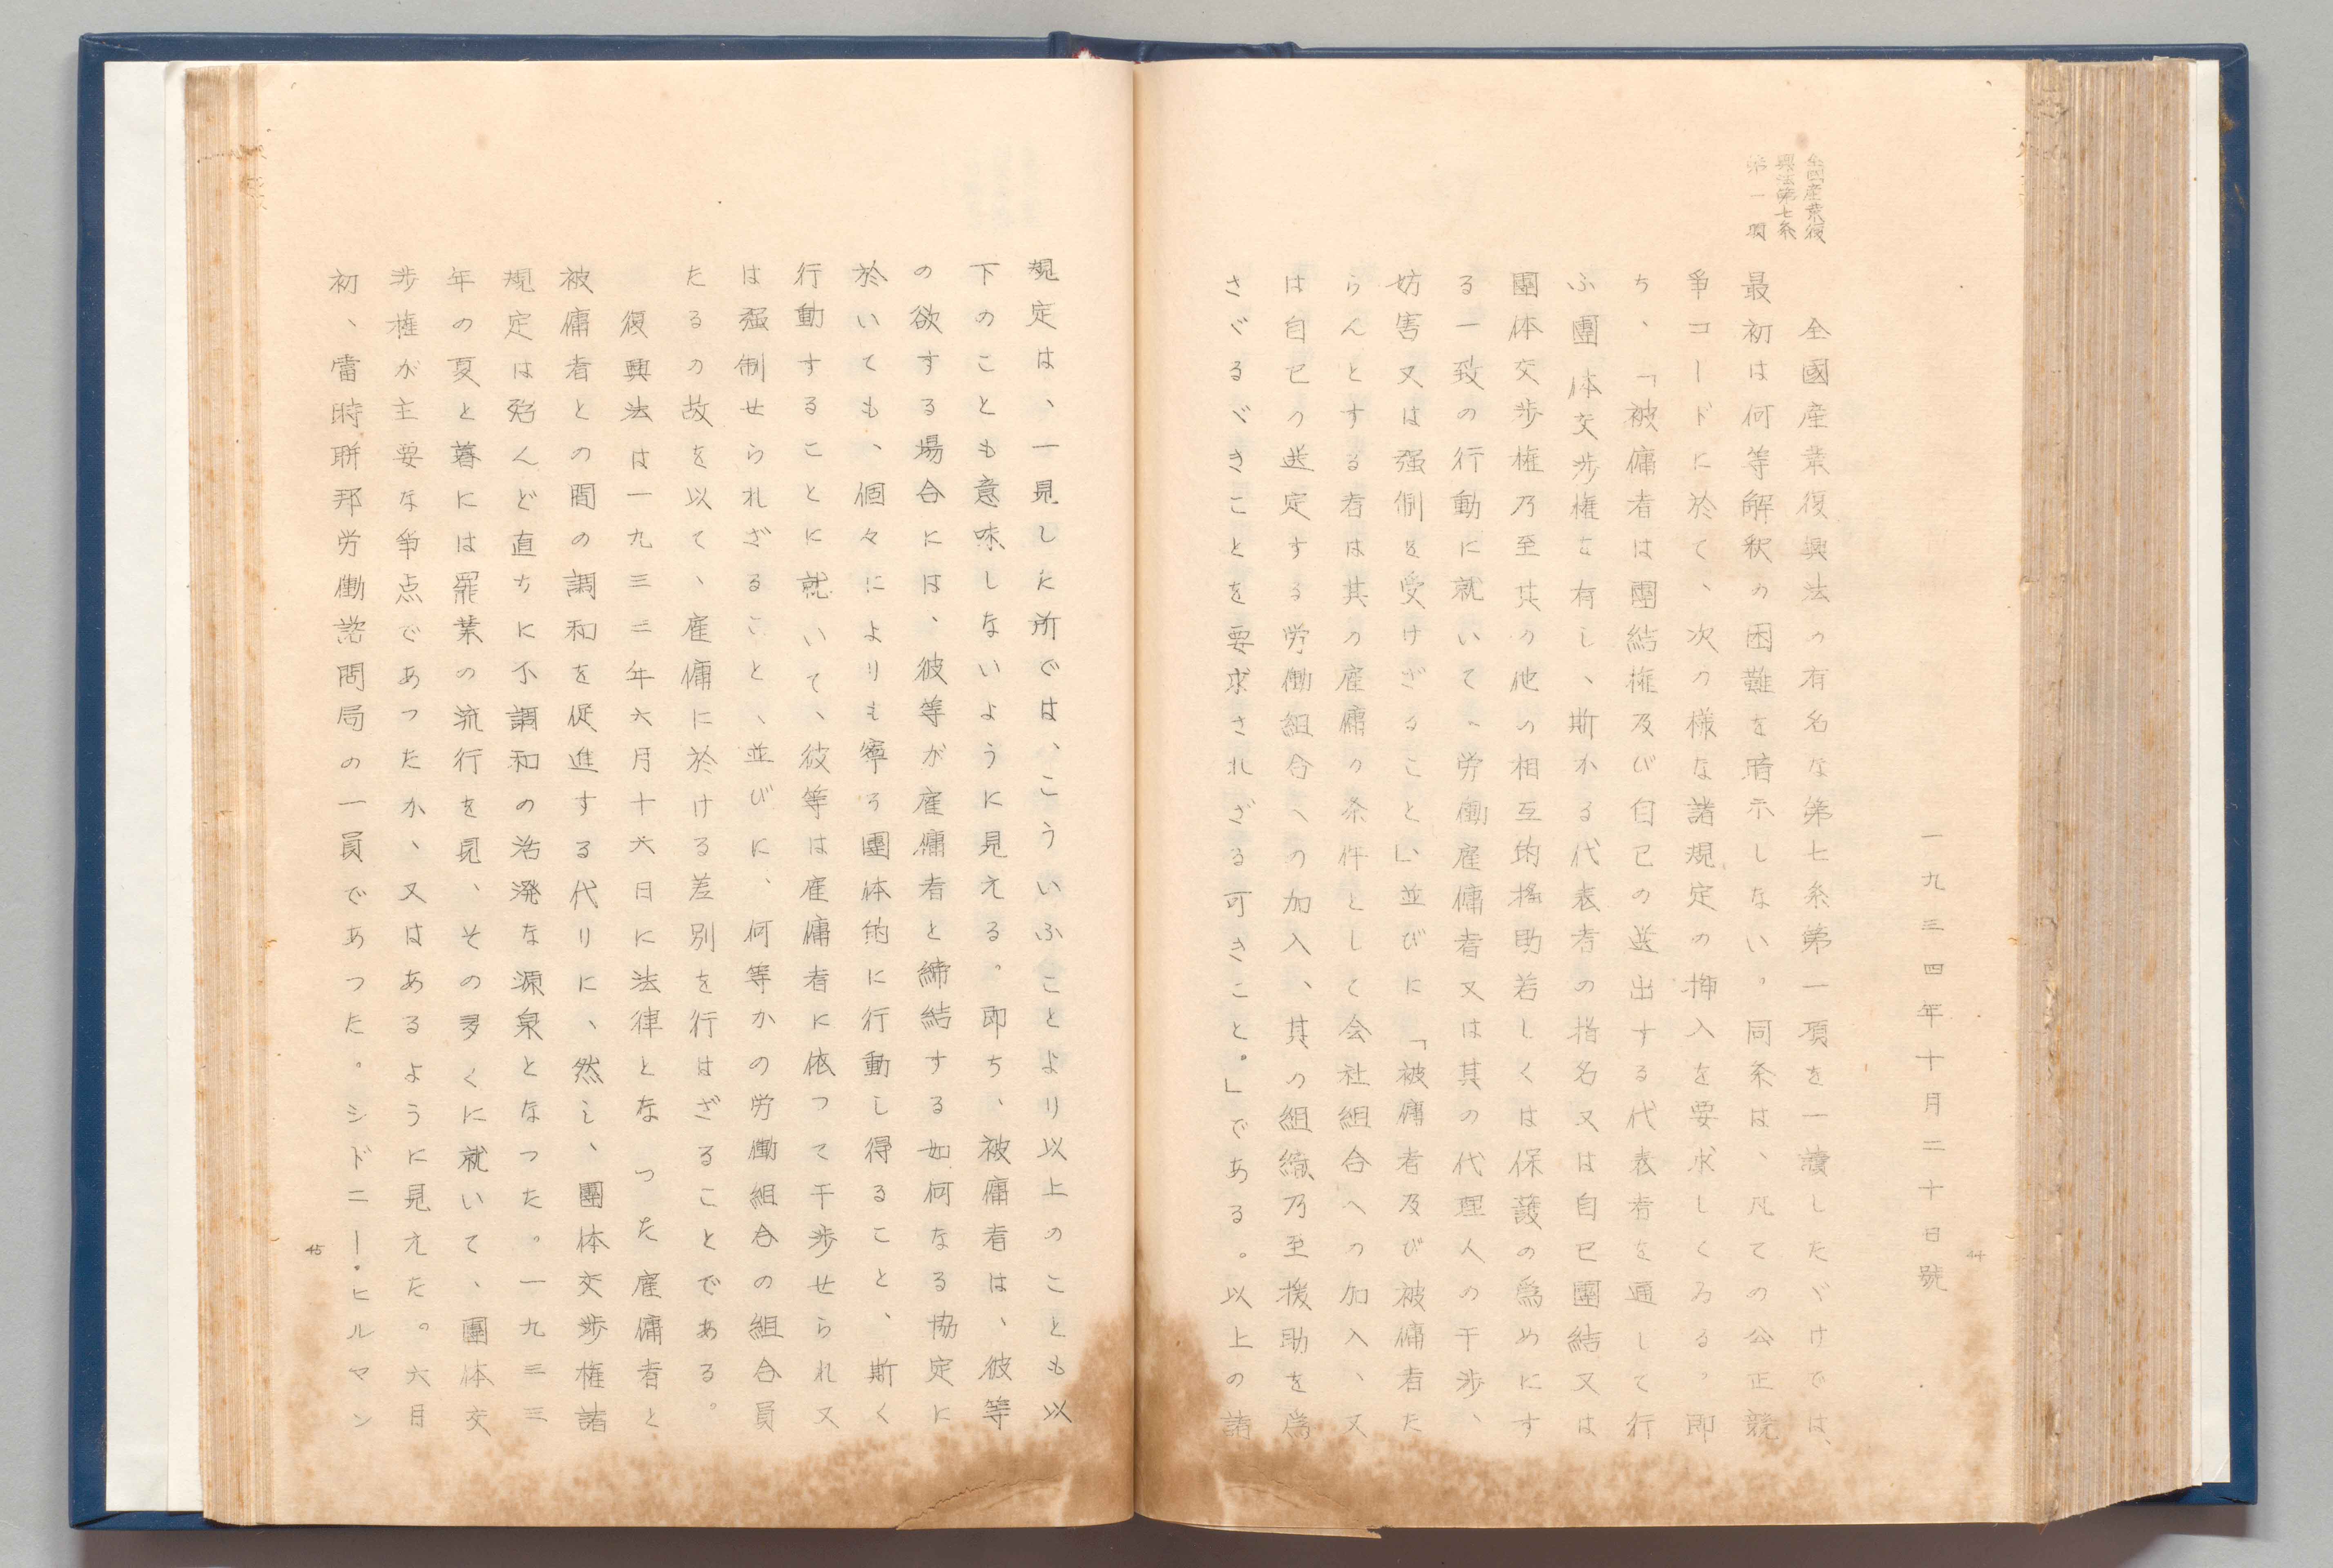 44
一九三四年十月二十日號
全囯産業復
興法第七条
第一項
全國産業復興法の有名な第七条第一項を一讀したゞけでは、
最初は何等解釈の困難を暗示しない。同条は、凡ての公正競
争コードに於て、次の様な諸規定の挿入を要求しくろる。即
ち、「被傭者は團結権及び自已の選出する代表者を通して行
ふ團体交渉権を有し、斯かる代表者の指名又は自已團結又は
團体交歩権乃至其の他の相互的搖助若しくは保護の爲めにす
る一致の行動に就いて、労働雇傭者又は其の代理人の干渉、
妨害又は强制を受けざること」、並びに「被傭者及び被傭者た
らんとする者は其の雇傭の条件として会社組合への加入、又
は自已の選定する労働組合への加入、其の組織乃至援助を為
さゞるべきことを要求されざる可きこと。」である。以上の諸
規定は、一見した所では、こういふことより以上のことも以
下のことも意味しないように見える。即ち、被傭者は、彼等
の欲する場合には、彼等が雇傭者と締結する如何なる協定に
於いても、個々によりも寧ろ團体的に行動し得ること、斯く
行動することに就いて、彼等は雇傭者に依つて干渉せられ又
は强制せられざること、並びに、何等かの労働組合の組合員
たるの故を以て、雇傭に於ける差別を行はざることである。
復興法は一九三三年六月十六日に法律となつた雇傭者と
被傭者との間の調和を促進する代りに、然し、團体交歩権諸
規定は殆んど直ちに不調和の活溌な源泉となつた。一九三三
年の夏と暮には罷業の流行を見、その多くに就いて、團体交
渉権が主要な争点であつたか、又はあるように見えた。六月
初、當時聨邦労働諮問局の一員であつた。シドニー・ヒルマン
45